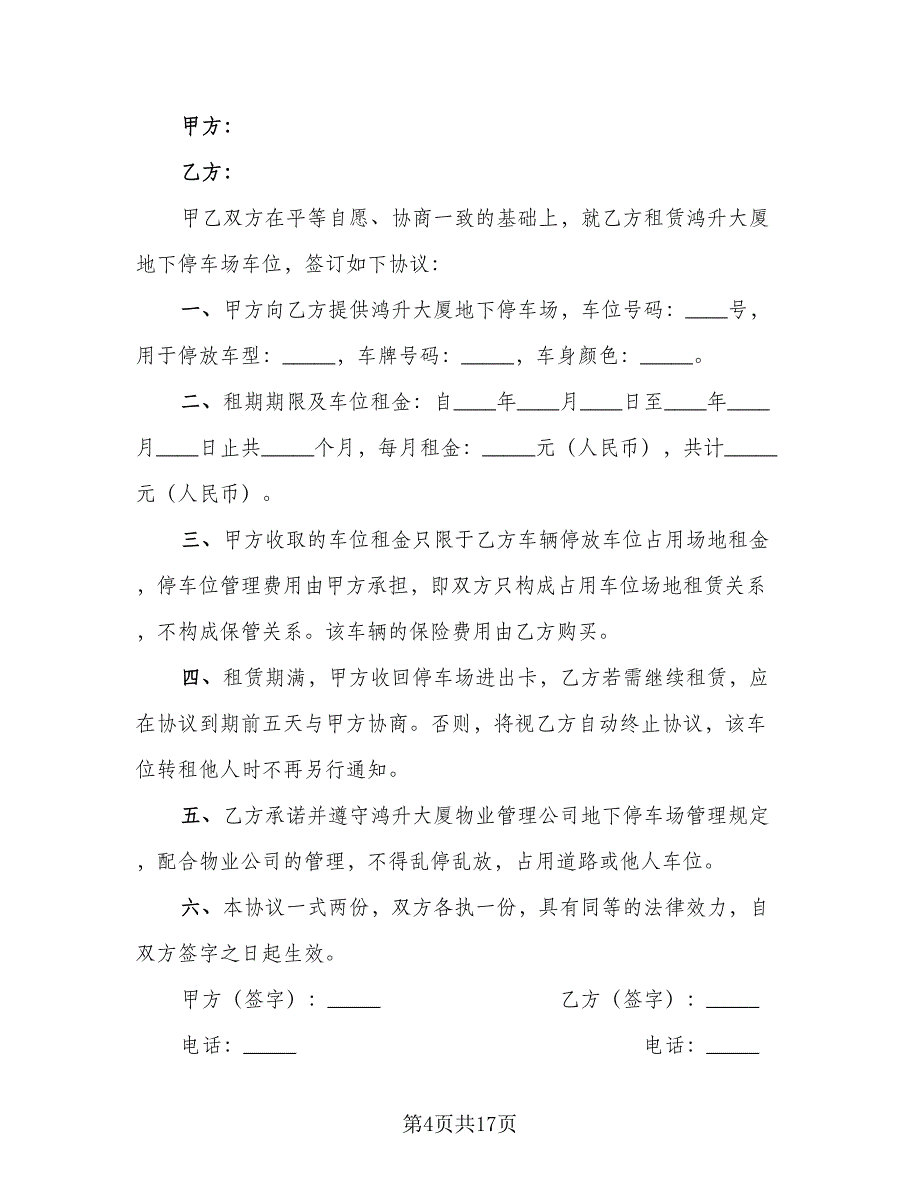 甲方：
乙方：
甲乙双方在平等自愿、协商一致的基础上，就乙方租赁鸿升大厦
地下停车场车位，签订如下协议：
一、甲方向乙方提供鸿升大厦地下停车场，车位号码：____号，
用于停放车型：_____，车牌号码：_____，车身颜色：_____。
二、租期期限及车位租金：自____年____月____日至____年____
月____日止共_____个月，每月租金：_____元（人民币），共计_____
元（人民币）。
三、甲方收取的车位租金只限于乙方车辆停放车位占用场地租金
，停车位管理费用由甲方承担，即双方只构成占用车位场地租赁关系
，不构成保管关系。该车辆的保险费用由乙方购买。
四、租赁期满，甲方收回停车场进出卡，乙方若需继续租赁，应
在协议到期前五天与甲方协商。否则，将视乙方自动终止协议，该车
位转租他人时不再另行通知。
五、乙方承诺并遵守鸿升大厦物业管理公司地下停车场管理规定
，配合物业公司的管理，不得乱停乱放，占用道路或他人车位。
六、本协议一式两份，双方各执一份，具有同等的法律效力，自
双方签字之日起生效。
甲方（签字）：_____ 乙方（签字）：_____
电话：_____ 电话：_____
第4页共17页